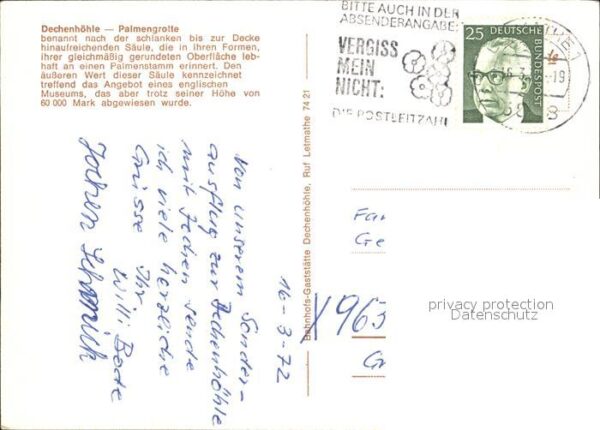 Dechenhöhle — Palmengrotte
benannt nach der schlanken bis zur Decke
hinaufreichenden Säule, die in ihren Formen,
ihrer gleichmäßig gerundeten Oberfläche leb-
haft an einen Palmenstamm erinnert. Den
äußeren Wert dieser Säule kennzeichnet
treffend das Angebot eines englischen
Museums, das aber trotz seiner Höhe von
60 000 Mark abgewiesen wurde.
BITTE AUCH IN DER
ABSENDERANGABE:
VERGISS
MEIN
NICHT:
DIE POSTLEITZAHL
25
DEUTSCHE
BUNDESPOST
Bahnhofs-Gaststätte Dechenhöhle, Ruf Letmathe 74 21
16-3-72
Von unserem Sonder-
ausflug zur Dechenhöhle
mit Jochen sende
ich viele herzliche
Grüsse Ihr
Willi Bode
Jochen
Fa
Ge
1963
G
privacy protection
Datenschutz